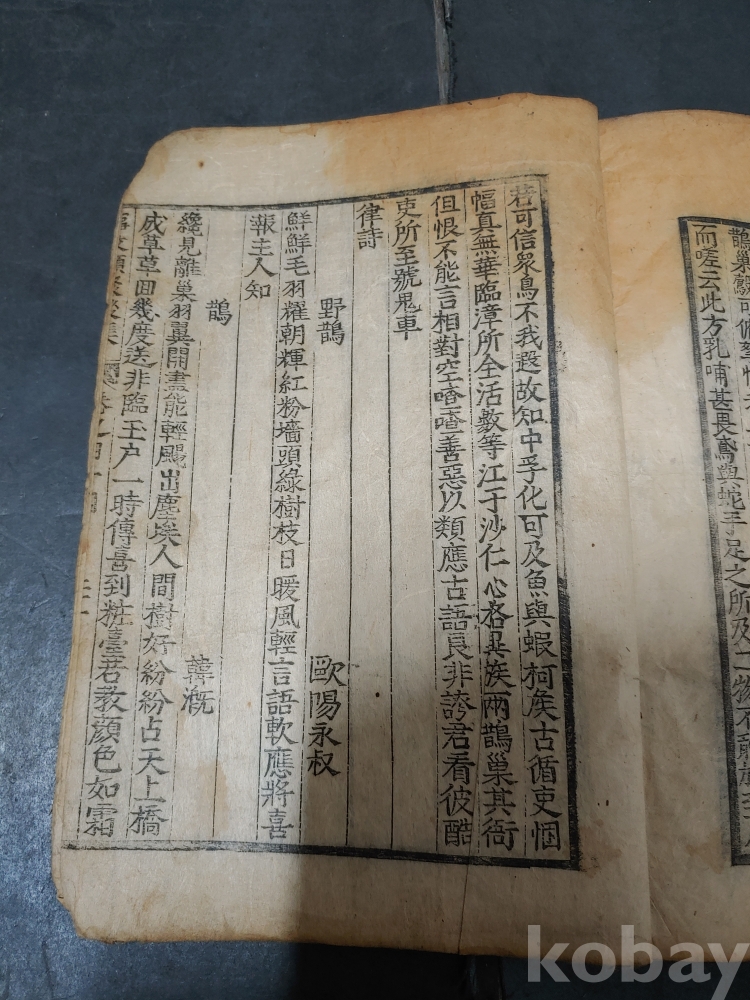 而嗟云此方乳哺甚畏鳶與蛇手足之所及二物不
若可信衆鳥不我遐故知中孚化可及魚與蝦柯侯古循吏悃
愊真無華臨漳所全活數等江干沙仁心格異族兩鵲巢其衙
但恨不能言相對空喳喳善惡以類應古語良非誇君看彼酷
吏所至號鬼車
律詩
野鵲 歐陽永叔
鮮鮮毛羽耀朝輝紅粉墻頭綠樹枝日暖風輕言語軟應將喜
報主人知
鵲 韓溉
纔見離巢羽翼開盡能輕颺出塵埃人間樹好紛紛占天上橋
成草草回幾度送非臨玉戶一時傳喜到粧臺若教顏色如霜
事文類聚後集 卷之四十
kobay